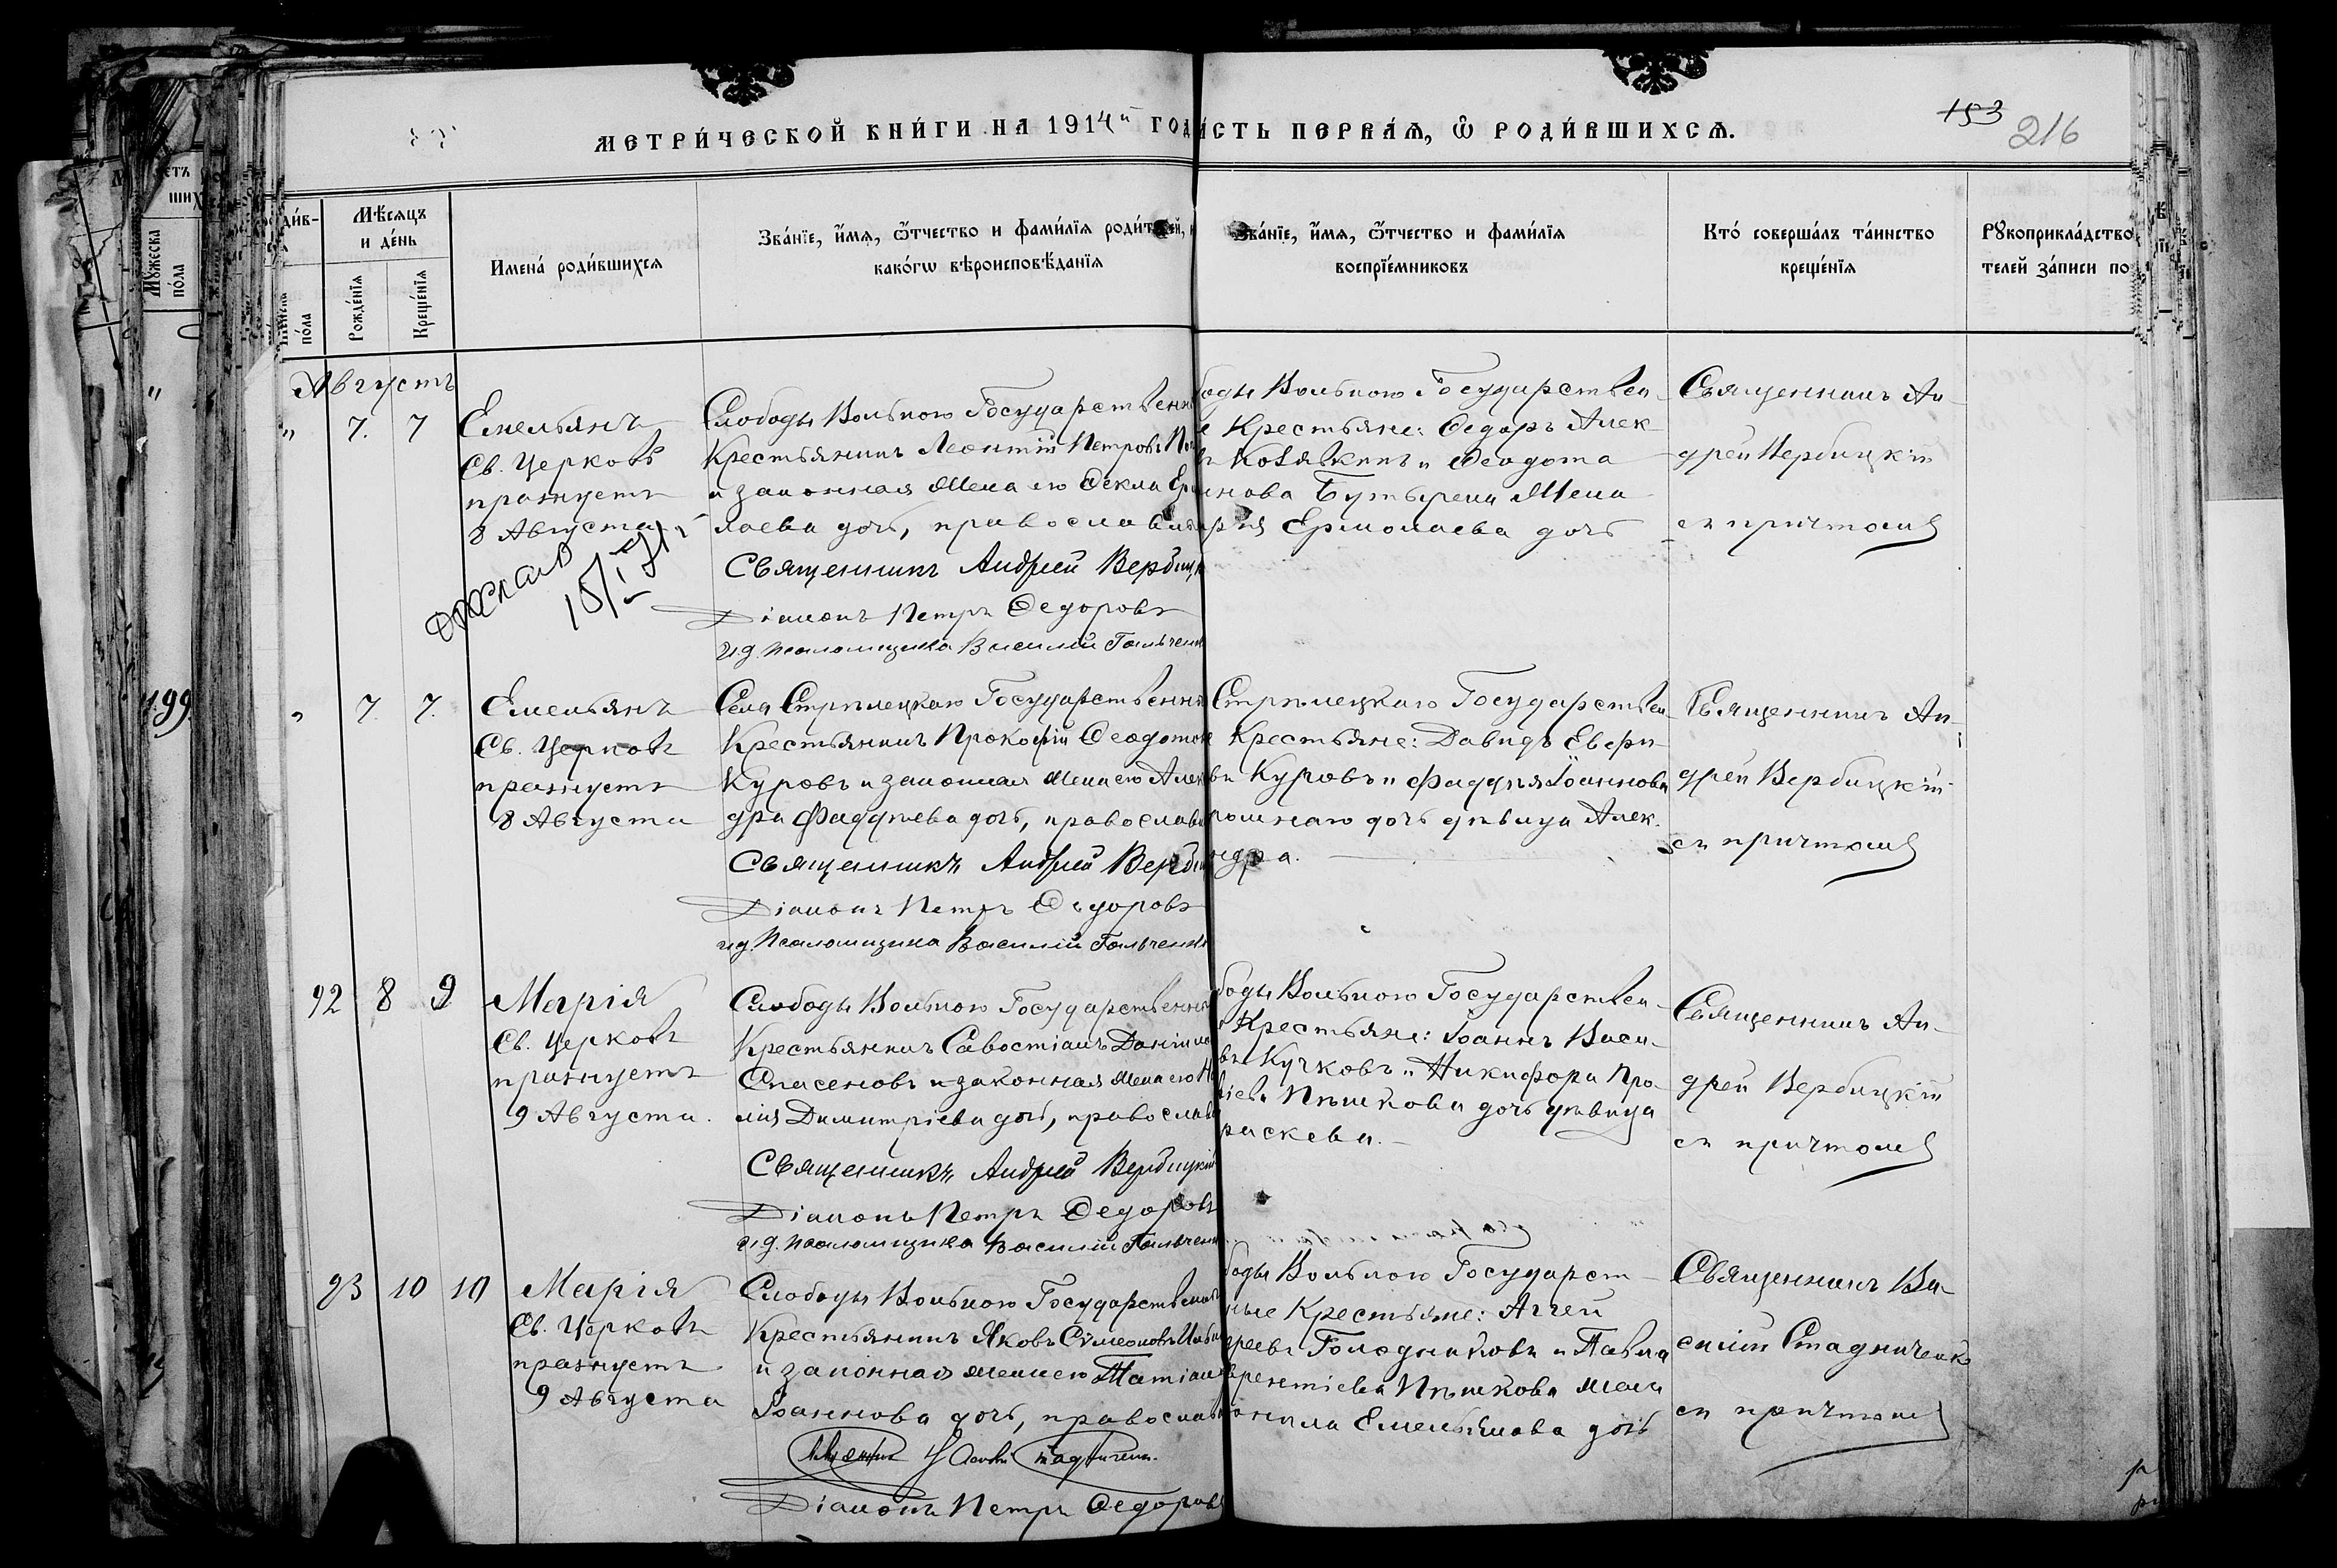 МЕТРИ́ЧЕСКОЙ КНИ́ГИ НА 1914й ГОД
ЧА́СТЬ ПЕРВАѦ, Ѽ РОДИ́ВШИХСѦ.
153
216
Мѣ́сѧцъ и де́нь
Рожде́нїѧ
Креще́нїѧ
Мꙋжеска по́ла
по́ла
Имена́ роди́вшихсѧ
Зва́нїе, и҆́мѧ, ѻ҆́тчество и фами́лїѧ роди́телей, и
како́гѡ вѣроисповѣ́данїѧ
Зва́нїе, и҆́мѧ, ѻ҆́тчество и фами́лїѧ
воспрїе́мниковъ
Кто́ соверша́лъ та́инство
креще́нїѧ
Рꙋкоприкла́дство
телей за́писи по
Августъ
" 7. 7
Емельянъ
Св. Церковь
празнуетъ
8 Августа
Слободы Вольного Государственн
Крестьянинъ Леонтій Петровъ
и законная жена его Ѳекла Ер
лаева дочь, православн
Священникъ Андрей Вербицк
Діаконъ Петръ Ѳедоровъ
и.д. Псаломщика Василій Гальченк
боды Вольного Государствен-
Крестьяне: Ѳедоръ Алек-
Ковявкинъ и Ѳеодота
Бутырска жена
Ермолаева дочь
Священникъ Ан-
дрей Вербицкій
съ причтомъ
199
" 7. 7.
Емельянъ
Св. Церковь
празнуетъ
8 Августа
Села Стрѣлецкаго Государственн
Крестьянинъ Прокофій Ѳеодотов
Куровъ и законная жена его Алекс
дра Фаддѣева дочь, православ
Священникъ Андрей Верби
Діаконъ Петръ Ѳедоровъ
и.д. Псаломщика Василій Гальченк
Стрѣлецкаго Государствен-
Крестьяне: Давидъ Евфи-
въ Куровъ и Фаддѣя Іоаннова
дочь дѣвица Алек-
ндра.
Священникъ Ан-
дрей Вербицкій
съ причтомъ
92 8 9
Марія
Св. Церковь
празнуетъ
9 Августа.
Слободы Вольного Государственн
Крестьянинъ Савостіанъ Даніило
Спасеновъ и законная жена его
лія Димитріева дочь, православ
Священникъ Андрей Вербицкій
Діаконъ Петръ Ѳедоровъ
и.д. Псаломщика Василій Гальченк
боды Вольного Государствен-
Крестьяне: Іоаннъ Васи-
въ Кучковъ и Никифора Про-
Пѣшкова дочь дѣвица
раскева.
Священникъ Ан-
дрей Вербицкій
съ причтомъ
93 10 10
Марія
Св. Церковь
празнуетъ
9 Августа
Слободы Вольного Государственн
Крестьянинъ Яковъ Сѵмеоновъ
и законная жена его Татіан
Іоаннова дочь, православ
Діаконъ Петръ Ѳедоровъ
боды Вольного Государст-
ные Крестьяне: Аггей
Голодниковъ и Павла
врентіева Пѣшкова жена
Емельянова дочь
Священникъ Ва-
силій Стадниченко
съ причтомъ